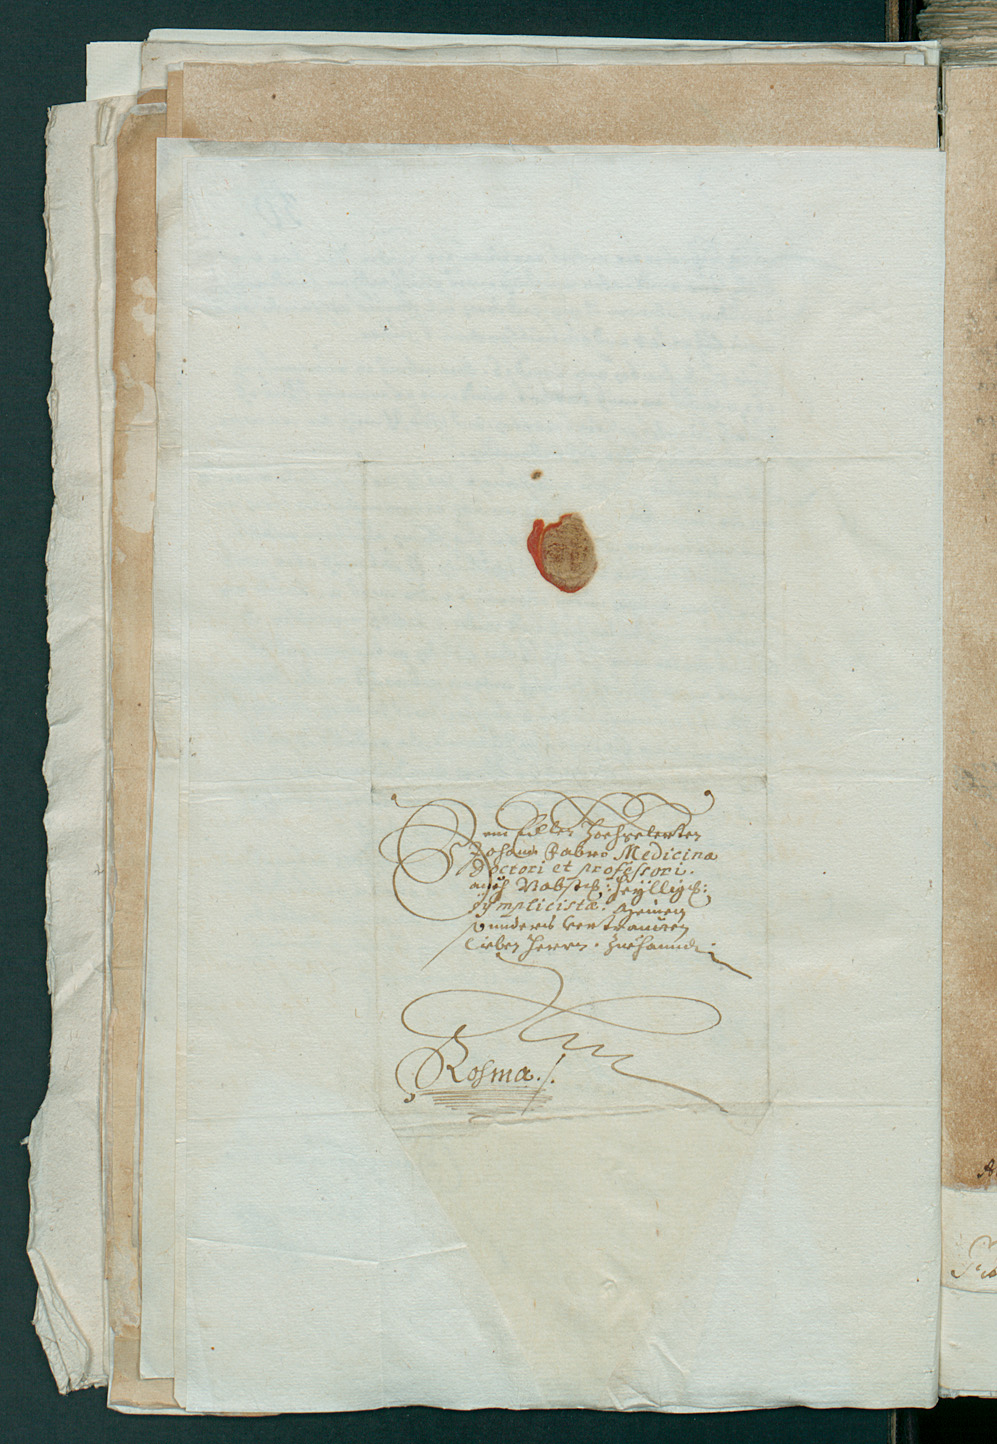 Dem Edlen Hochgelerten
Johann Fabro Medicinæ
Doctori et professori.
auch Päbstl: Heylligk:
symplicistæ. Meinem
sunders vertrauten
lieben Herrn. Zuhannden
Rohma ./.